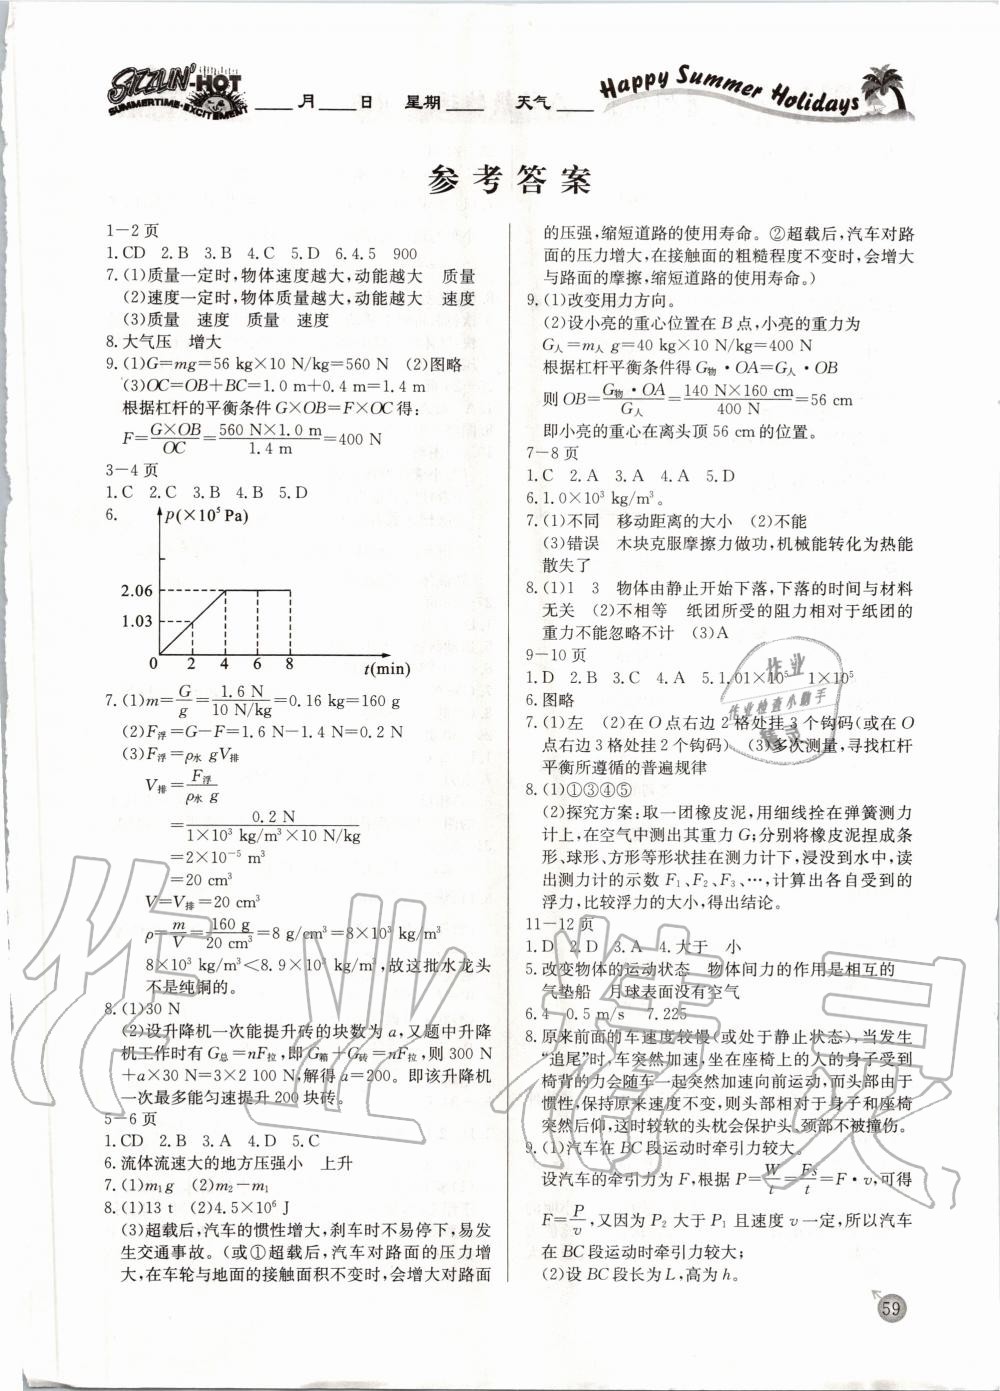 SIZZLIN'-HOT
SUMMERTIME-EXCITEMENT
____月____日 星期____ 天气____
Happy Summer Holidays
参考答案
1－2页
1.CD 2.B 3.B 4.C 5.D 6.4.5 900
7.(1)质量一定时,物体速度越大,动能越大 质量
(2)速度一定时,物体质量越大,动能越大 速度
(3)质量 速度 质量 速度
8.大气压 增大
9.(1)G=mg=56 kg×10 N/kg=560 N (2)图略
(3)OC=OB+BC=1.0 m+0.4 m=1.4 m
根据杠杆的平衡条件 G×OB=F×OC 得:
F=G×OB/OC=560 N×1.0 m/1.4 m=400 N
3－4页
1.C 2.C 3.B 4.B 5.D
6.
p(×10⁵Pa)
2.06
1.03
0 2 4 6 8 t(min)
7.(1)m=G/g=1.6 N/10 N/kg=0.16 kg=160 g
(2)F浮=G－F=1.6 N－1.4 N=0.2 N
(3)F浮=ρ水 gV排
V排=F浮/ρ水 g
=0.2 N/1×10³ kg/m³×10 N/kg
=2×10⁻⁵ m³
=20 cm³
V=V排=20 cm³
ρ=m/V=160 g/20 cm³=8 g/cm³=8×10³ kg/m³
8×10³ kg/m³<8.9×10³ kg/m³,故这批水龙头
不是纯铜的。
8.(1)30 N
(2)设升降机一次能提升砖的块数为a,又题中升降
机工作时有G总=nF拉,即G箱+G砖=nF拉,则 300 N
+a×30 N=3×2 100 N,解得a=200。即该升降机
一次最多能匀速提升200块砖。
5－6页
1.CD 2.B 3.A 4.D 5.C
6.流体流速大的地方压强小 上升
7.(1)m₁g (2)m₂－m₁
8.(1)13 t (2)4.5×10⁶ J
(3)超载后,汽车的惯性增大,刹车时不易停下,易发
生交通事故。(或①超载后,汽车对路面的压力增
大,在车轮与地面的接触面积不变时,会增大对路面
的压强,缩短道路的使用寿命。②超载后,汽车对路
面的压力增大,在接触面的粗糙程度不变时,会增大
与路面的摩擦,缩短道路的使用寿命。)
9.(1)改变用力方向。
(2)设小亮的重心位置在B点,小亮的重力为
G人=m人 g=40 kg×10 N/kg=400 N
根据杠杆平衡条件得G物·OA=G人·OB
则OB=G物·OA/G人=140 N×160 cm/400 N=56 cm
即小亮的重心在离头顶56 cm的位置。
7－8页
1.C 2.A 3.A 4.A 5.D
6.1.0×10³ kg/m³。
7.(1)不同 移动距离的大小 (2)不能
(3)错误 木块克服摩擦力做功,机械能转化为热能
散失了
8.(1)1 3 物体由静止开始下落,下落的时间与材料
无关 (2)不相等 纸团所受的阻力相对于纸团的
重力不能忽略不计 (3)A
9－10页
1.D 2.B 3.C 4.A 5.1.01×10⁵ 1×10⁵
6.图略
7.(1)左 (2)在O点右边2格处挂3个钩码(或在O
点右边3格处挂2个钩码) (3)多次测量,寻找杠杆
平衡所遵循的普遍规律
8.(1)①③④⑤
(2)探究方案:取一团橡皮泥,用细线拴在弹簧测力
计上,在空气中测出其重力G;分别将橡皮泥捏成条
形、球形、方形等形状挂在测力计下,浸没到水中,读
出测力计的示数F₁、F₂、F₃、…,计算出各自受到的
浮力,比较浮力的大小,得出结论。
11－12页
1.D 2.D 3.A 4.大于 小
5.改变物体的运动状态 物体间力的作用是相互的
气垫船 月球表面没有空气
6.4 0.5 m/s 7.225
8.原来前面的车速度较慢(或处于静止状态),当发生
“追尾”时,车突然加速,坐在座椅上的人的身子受到
椅背的力会随车一起突然加速向前运动,而头部由于
惯性,保持原来速度不变,则头部相对于身子和座椅
突然后仰,这时较软的头枕会保护头、颈部不被撞伤。
9.(1)汽车在BC段运动时牵引力较大。
设汽车的牵引力为F,根据P=W/t=Fs/t=F·v,可得
F=P/v,又因为P₂大于P₁且速度v一定,所以汽车
在BC段运动时牵引力较大;
(2)设BC段长为L,高为h。
59
作业
作业检查小助手
精灵
作业精灵